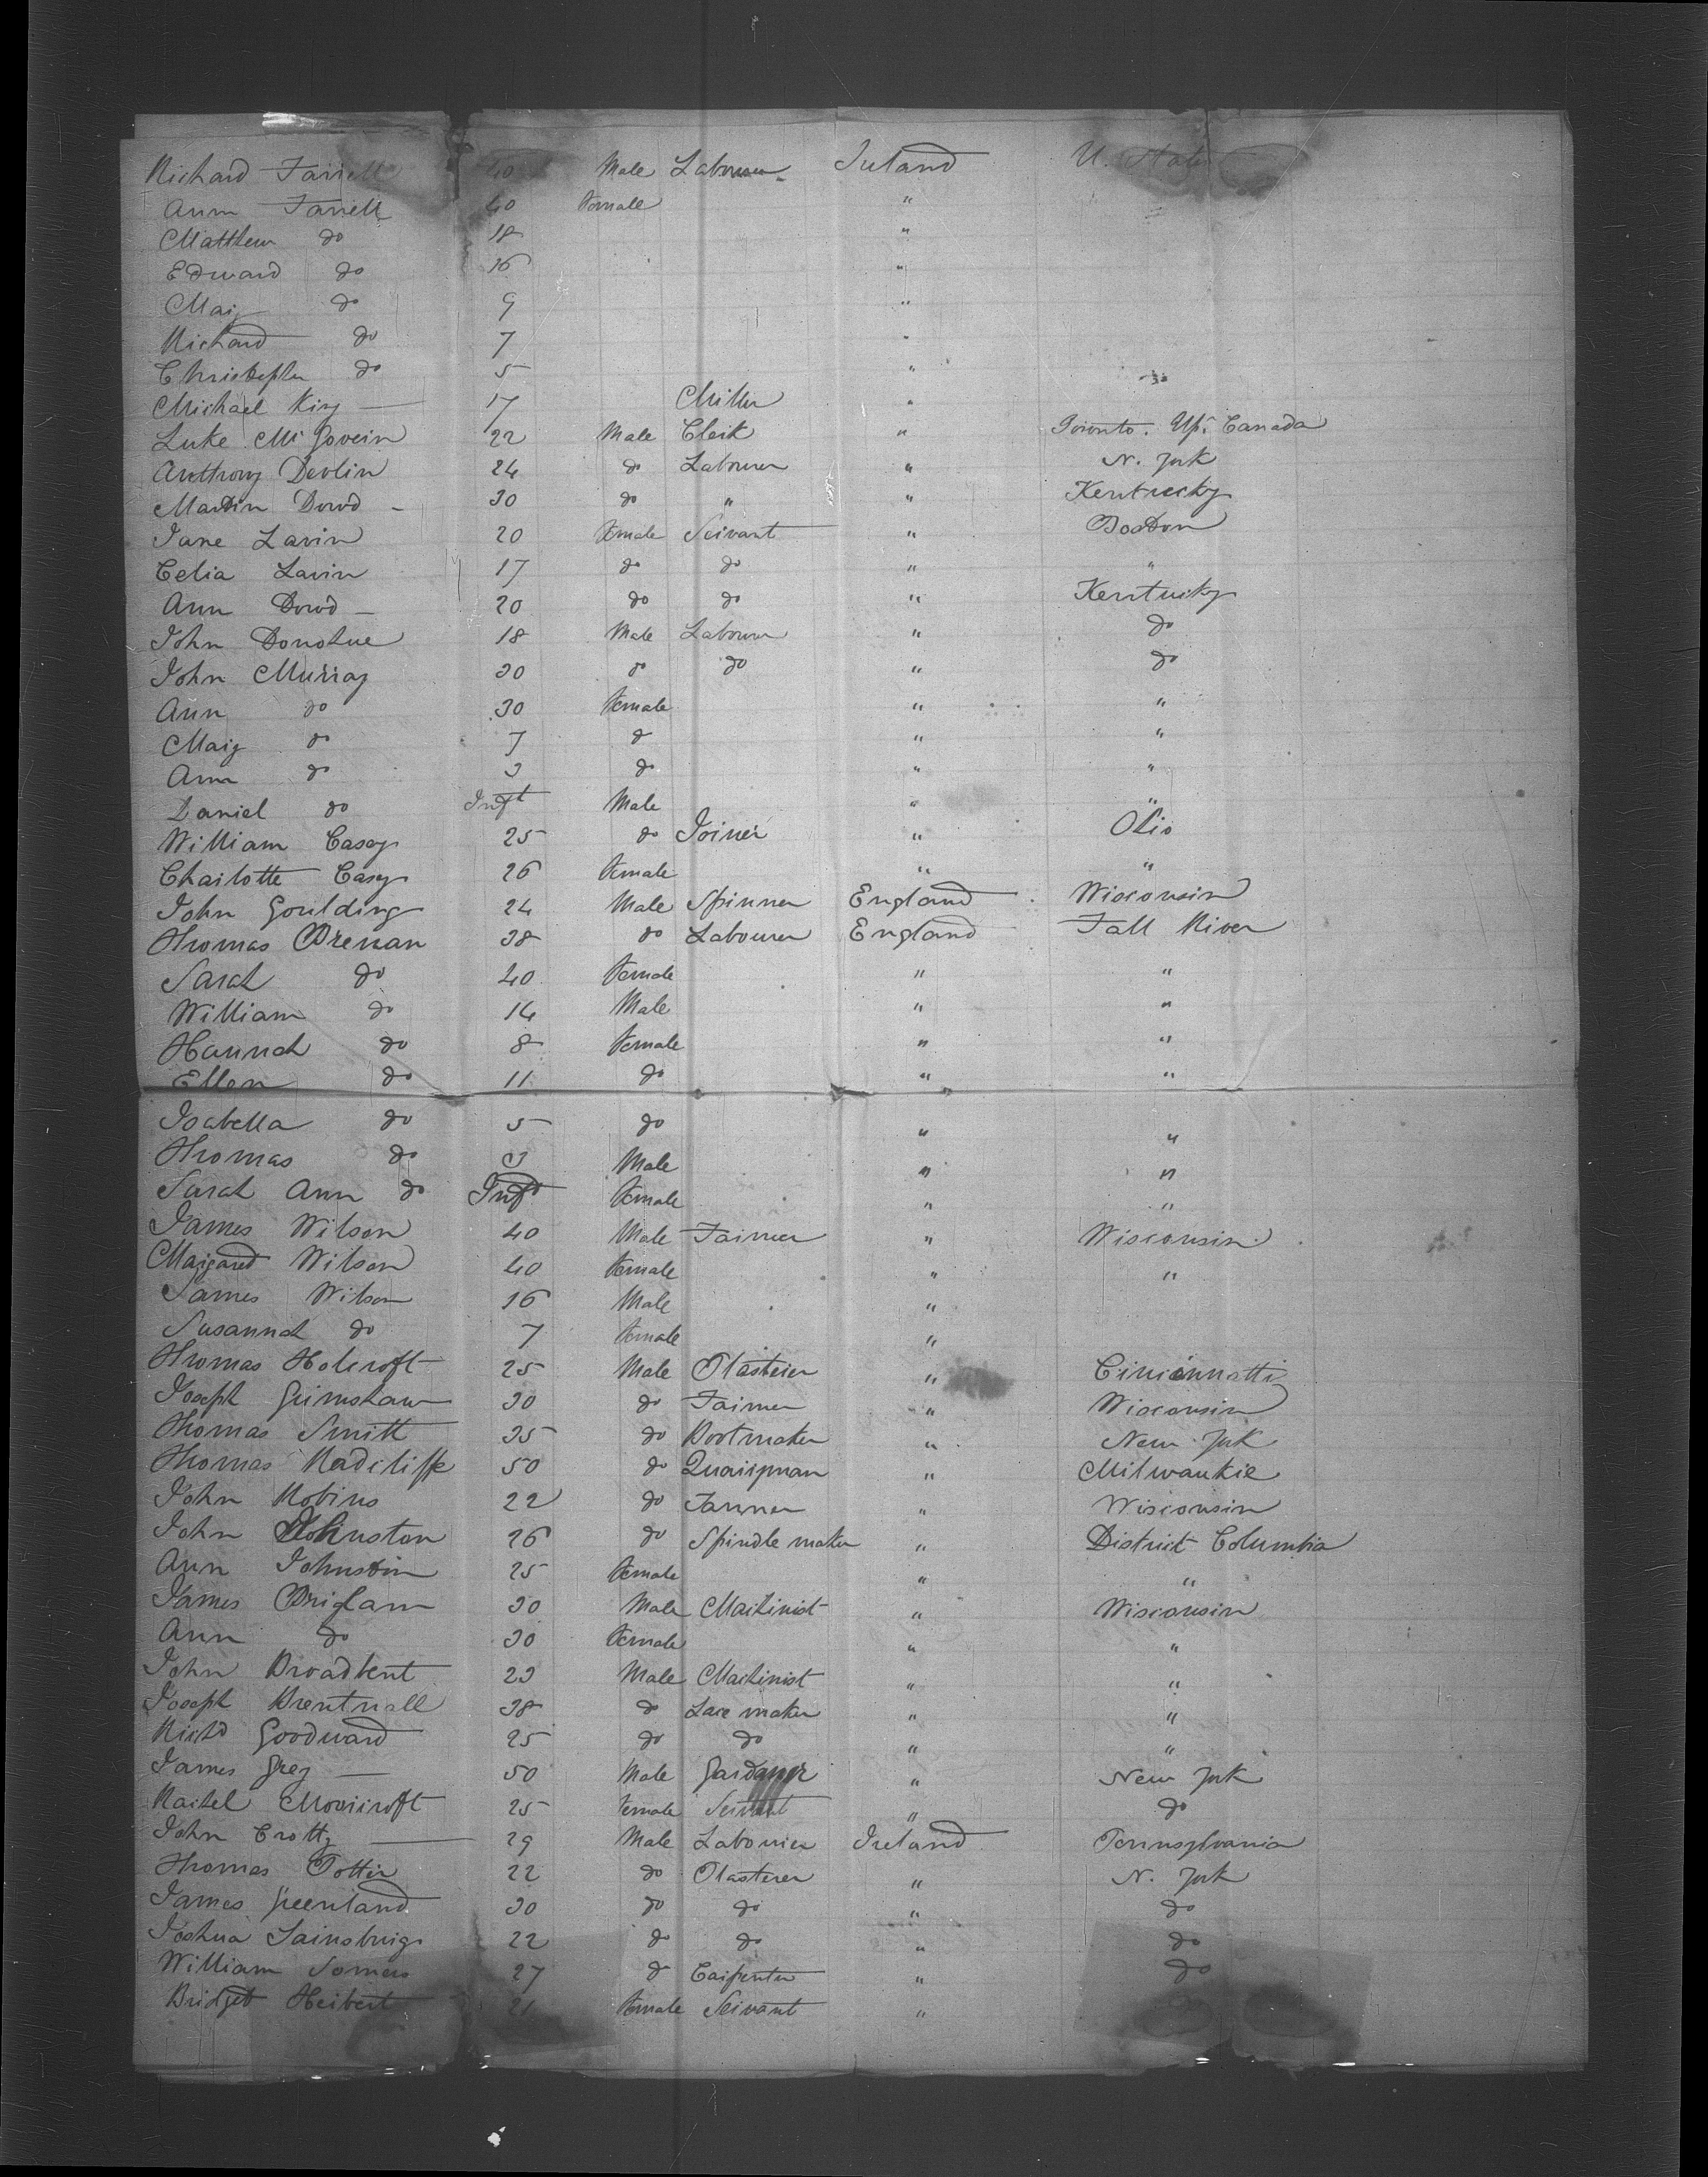 Richard Farrell 40 Male Labourer Ireland U. States
Ann Farrell 40 Female "
Matthew do 18 "
Edward do 16 "
Mary do 9 "
Richard do 7 "
Christopher do 5 "
Michael King — 17 Miller "
Luke McGovern 22 Male Clerk " Toronto. Up. Canada
Anthony Devlin 24 do Labourer " N. York
Martin Dowd - 30 do " " Kentucky
Jane Lavin 20 Female Servant " Boston
Celia Lavin 17 do do " "
Ann Dowd - 20 do do " Kentucky
John Donohue 18 Male Labourer " do
John Murray 30 do do " do
Ann do 30 Female " "
Mary do 7 do " "
Ann do 3 do " "
Daniel do Inft Male " "
William Casey 25 do Joiner " Ohio
Charlotte Casey 26 Female " "
John Goulding 24 Male Spinner England Wisconsin
Thomas Brenan 38 do Labourer England Fall River
Sarah do 40 Female " "
William do 14 Male " "
Hannah do 8 Female " "
Ellen do 11 do " "
Isabella do 5 do " "
Thomas do 3 Male " "
Sarah Ann do Inft Female " "
James Wilson 40 Male Farmer " Wisconsin
Margaret Wilson 40 Female " "
James Wilson 16 Male "
Susannah do 7 Female "
Thomas Holcroft 25 Male Plasterer " Cincinnatti
Joseph Grimshaw 30 do Farmer " Wisconsin
Thomas Smith 35 do Bootmaker " New York
Thomas Radcliffe 50 do Quarryman " Milwaukie
John Robins 22 do Tanner " Wisconsin
John Johnston 26 do Spindle maker " District Columbia
Ann Johnston 25 Female " "
James Brigham 30 Male Machinist " Wisconsin
Ann do 30 Female " "
John Broadbent 23 Male Machinist " "
Joseph Brentnall 38 do Lace maker " "
Richd Goodward 25 do do " "
James Grey — 50 Male Gardaner " New York
Rachel Moorcroft 25 Female Servant " do
John Crotty — 29 Male Labourer Ireland Pennsylvania
Thomas Potter 22 do Plasterer " N. York
James Greenland 30 do do " do
Joshua Sainsbury 22 do do " do
William Somers 27 do Carpenter " do
Bridget Herbert 21 Female Servant "